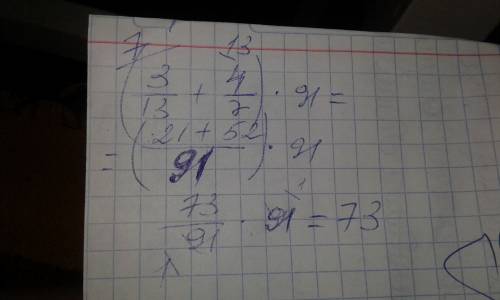 7 13
(3/13 + 4/7) · 91 =
= (21 + 52/91) · 91
73/91 · 91 = 73
1 1